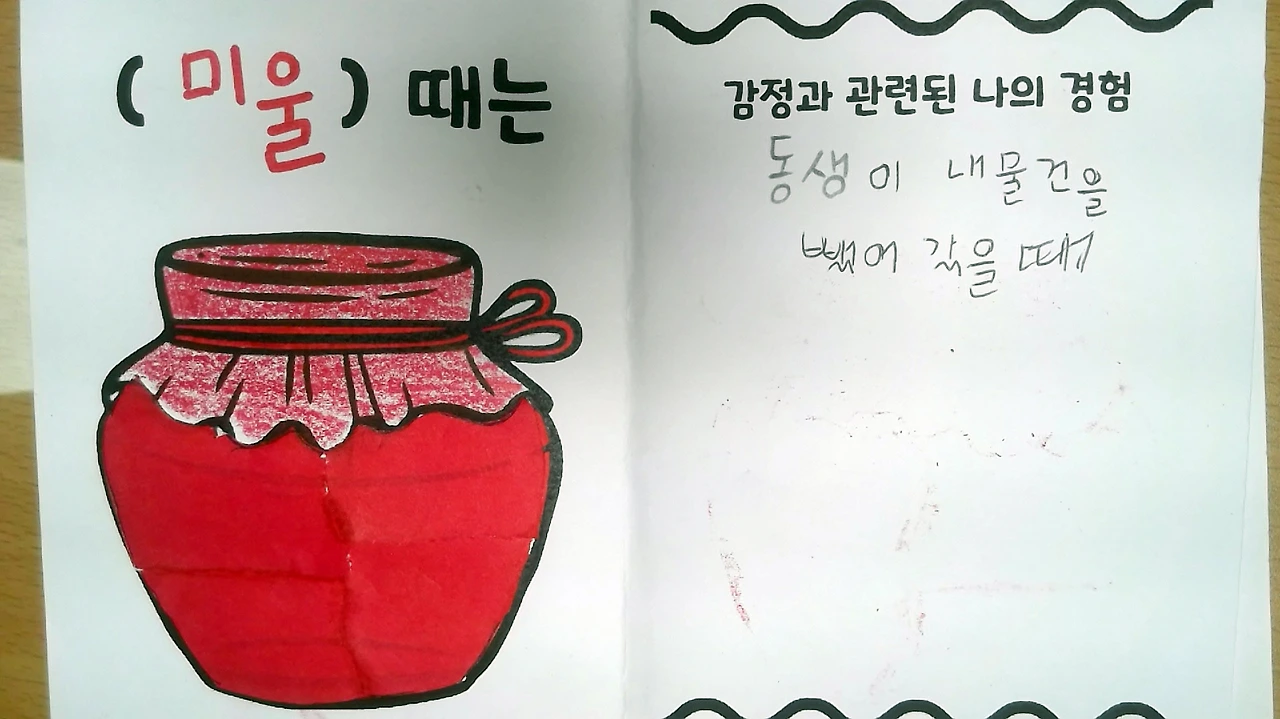 ( 미울 ) 때는
감정과 관련된 나의 경험
동생이 내물건을
뺐어 갔을 때